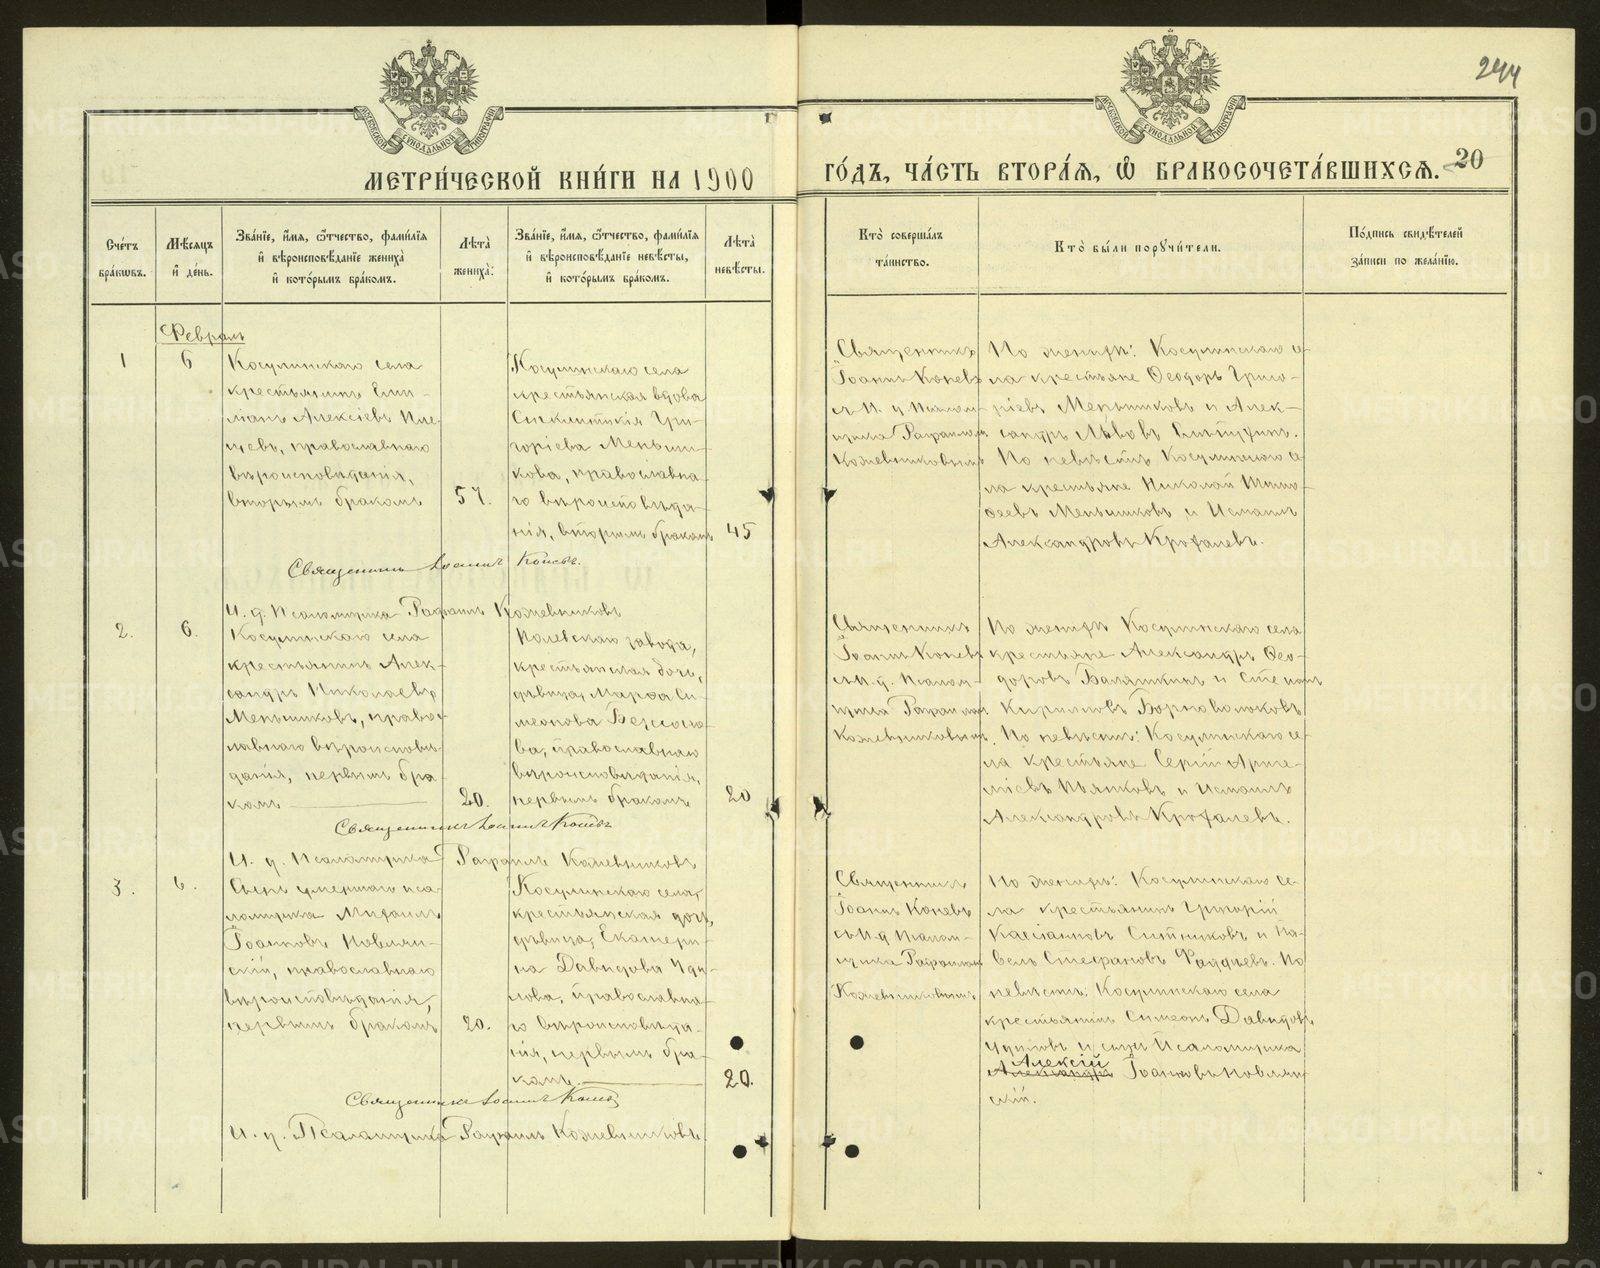 244
МЕТРИ́ЧЕСКОЙ КНИ́ГИ НА 1900
ГО́ДЪ, ЧА́СТЬ ВТОРА́Я, Ѡ БРАКОСОЧЕТА́ВШИХСЯ.
20
Сче́тъ бра́кѡвъ.
Мѣ́сяцъ и҆ де́нь.
Зва́нїе, и҆́мя, ѻ҆́тчество, фами́лїя
и҆ вѣроисповѣ́данїе жениха̀
и҆ кото́рымъ бра́комъ.
Лѣта̀ жениха̀.
Зва́нїе, и҆́мя, ѻ҆́тчество, фами́лїя
и҆ вѣроисповѣ́данїе невѣ́сты,
и҆ кото́рымъ бра́комъ.
Лѣта̀ невѣ́сты.
Кто̀ соверша́лъ
та́инство.
Кто̀ бы́ли порꙋчи́тели.
По́дпись свидѣ́телей
за́писи по жела́нїю.
Февраль
1
6
Косулинскаго села
крестьянинъ Еми-
ліанъ Алексіевъ
православнаго
вѣроисповѣданія,
вторымъ бракомъ
57.
Косулинскаго села
крестьянская вдова
Синклитикія Гри-
горіева Меньши-
кова, православна-
го вѣроисповѣда-
нія, вторымъ бракомъ
45
Священникъ
Іоаннъ Коневъ
съ И. д. Псалом-
щика Рафаиломъ
Кожевниковымъ
По женихѣ: Косулинскаго се-
ла крестьяне Ѳеодоръ Григо-
ріевъ Меньшиковъ и Алек-
сандръ Львовъ
По невѣстѣ Косулинскаго се-
ла крестьяне Николай Тимо-
ѳеевъ Меньшиковъ и Исмаилъ
Александровъ Крохалевъ.
Священникъ Іоаннъ Коневъ.
И. д. Псаломщика Рафаилъ Кожевниковъ
2.
6.
Косулинскаго села
крестьянинъ Алек-
сандръ Николаевъ
Меньшиковъ, право-
славнаго вѣроисповѣ-
данія, первымъ бра-
комъ
20.
Полевскаго завода,
крестьянская дочь,
дѣвица, Марѳа Си-
меонова Безсоно-
ва, православнаго
вѣроисповѣданія,
первымъ бракомъ
20
Священникъ
Іоаннъ Коневъ
съ И. д. Псалом-
щика Рафаиломъ
Кожевниковымъ.
По женихѣ Косулинскаго села
крестьяне Александръ Ѳео-
доровъ Балякинъ и Стефанъ
Кирилловъ Борноволоковъ
По невѣстѣ: Косулинскаго се-
ла крестьяне Сергій Арте-
міевъ Пьянковъ и Исмаилъ
Александровъ Крохалевъ.
Священникъ Іоаннъ Коневъ
И. д. Псаломщика Рафаилъ Кожевниковъ
3.
6.
Сынъ умершаго пса-
ломщика Михаилъ
Іоанновъ Новлян-
скій, православнаго
вѣроисповѣданія,
первымъ бракомъ
20.
Косулинскаго села,
крестьянская дочь,
дѣвица, Екатери-
на Давидова Уди-
лова, православна-
го вѣроисповѣда-
нія, первымъ бра-
комъ.
20.
Священникъ
Іоаннъ Коневъ
съ И д Псалом-
щика Рафаиломъ
Кожевниковымъ
По женихѣ: Косулинскаго се-
ла крестьянинъ Григорій
Кассіановъ Ситниковъ и Па-
велъ Стефановъ По
невѣстѣ: Косулинскаго села
крестьянинъ Симеонъ Давидовъ
Удиловъ и сынъ Псаломщика
Алексій
Александръ Іоанновъ Новлян-
скій.
Священникъ Іоаннъ Коневъ
И. д. Псаломщика Рафаилъ Кожевниковъ.